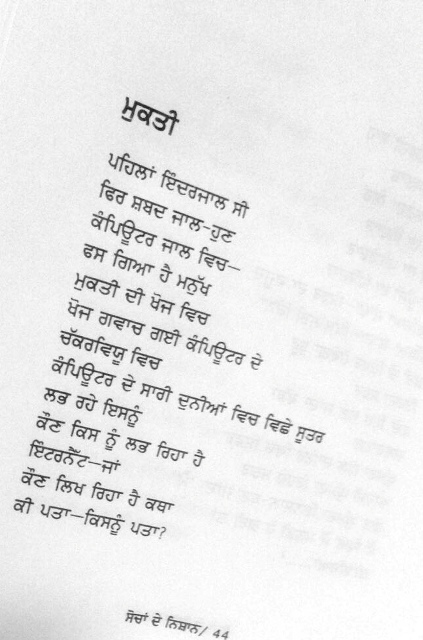 ਮੁਕਤੀ
ਪਹਿਲਾਂ ਇੰਦਰਜਾਲ ਸੀ
ਫਿਰ ਸ਼ਬਦ ਜਾਲ-ਹੁਣ
ਕੰਪਿਊਟਰ ਜਾਲ ਵਿਚ—
ਫਸ ਗਿਆ ਹੈ ਮਨੁੱਖ
ਮੁਕਤੀ ਦੀ ਖੋਜ ਵਿਚ
ਖੋਜ ਗਵਾਚ ਗਈ ਕੰਪਿਊਟਰ ਦੇ
ਚੱਕਰਵਿਯੂ ਵਿਚ
ਕੰਪਿਊਟਰ ਦੇ ਸਾਰੀ ਦੁਨੀਆਂ ਵਿਚ ਵਿਛੇ ਸੂਤਰ
ਲਭ ਰਹੇ ਇਸਨੂੰ
ਕੌਣ ਕਿਸ ਨੂੰ ਲਭ ਰਿਹਾ ਹੈ
ਇੰਟਰਨੈੱਟ—ਜਾਂ
ਕੌਣ ਲਿਖ ਰਿਹਾ ਹੈ ਕਥਾ
ਕੀ ਪਤਾ—ਕਿਸਨੂੰ ਪਤਾ?
ਸੋਚਾਂ ਦੇ ਨਿਸ਼ਾਨ/ 44